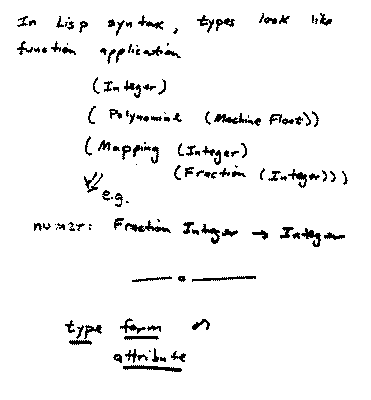 In Lisp syntax, types look like
function application
(Integer)
(Polynomial (Machine Float))
(Mapping (Integer)
(Fraction (Integer)))
e.g.
numer: Fraction Integer → Integer
type form or
attribute